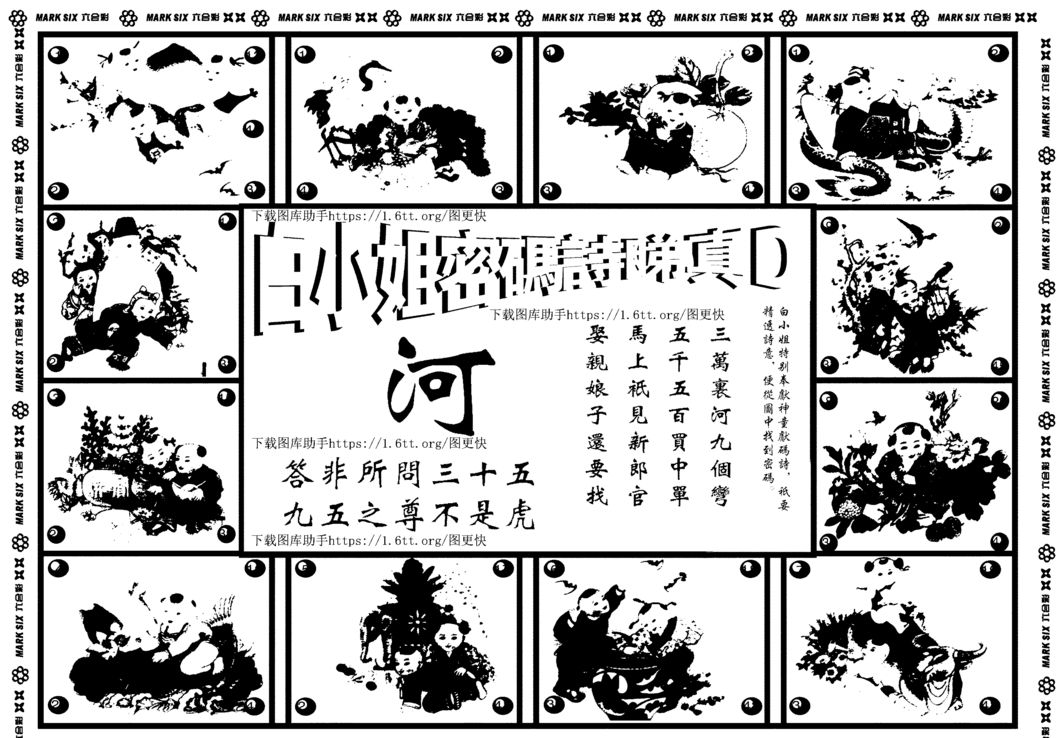 MARK SIX 六合彩 MARK SIX 六合彩 MARK SIX 六合彩 MARK SIX 六合彩 MARK SIX 六合彩 MARK SIX 六合彩 MARK SIX 六合彩 MARK SIX 六合彩
下载图库助手https://1.6tt.org/图更快
白小姐密碼詩睇真D
下载图库助手https://1.6tt.org/图更快
白小姐特别奉獻神童獻碼詩，祇要
精通詩意，便從圖中找到密碼。
三萬裏河九個彎
五千五百買中單
馬上祇見新郎官
娶親娘子還要找
河
下载图库助手https://1.6tt.org/图更快
答非所問三十五
九五之尊不是虎
下载图库助手https://1.6tt.org/图更快